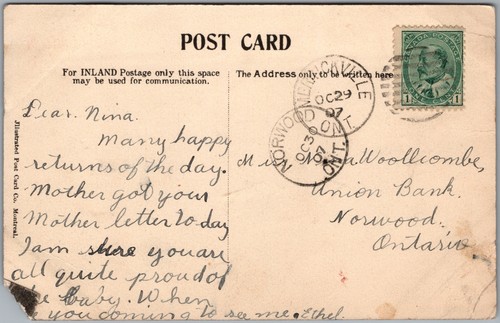 POST CARD
For INLAND Postage only this space
may be used for communication.
The Address only to be written here
MERRICKVILLE
OC 29
07
ONT.
NORWOOD
OC 30
07
ONT.
CANADA POSTAGE
1 1
Illustrated Post Card Co., Montreal.
Dear Nina.
Many happy
returns of the day.
Mother got your
Mother letter to day
I am sure you are
all quite proud of
the baby. When
you coming to see me. Ethel.
Woollcombe,
Union Bank.
Norwood.
Ontario